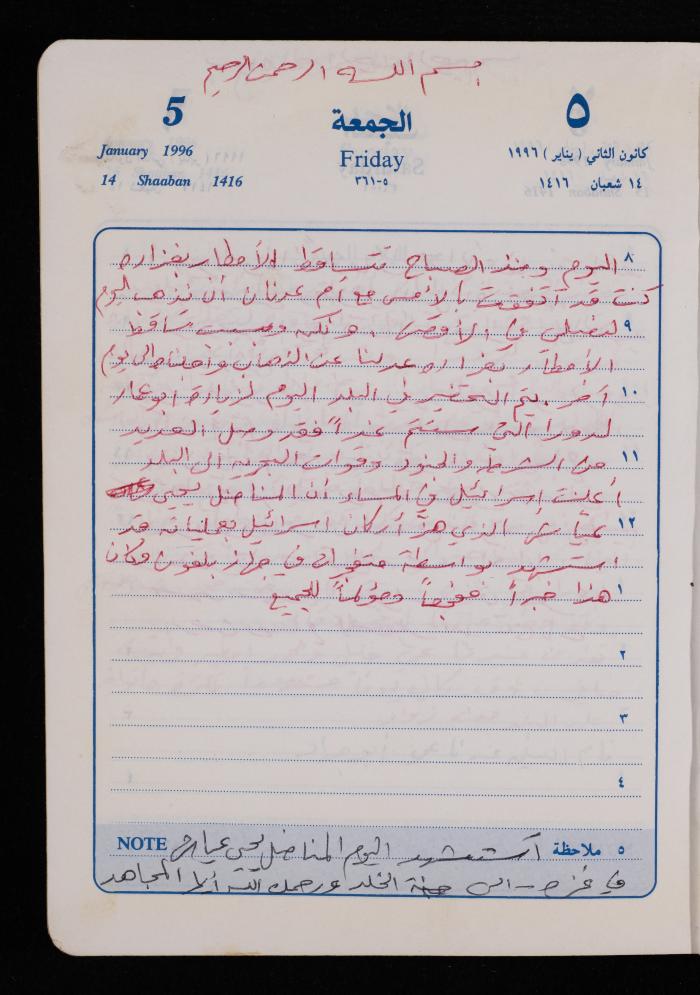 بسم الله الرحمن الرحيم
5 الجمعة ٥
January 1996 Friday كانون الثاني ( يناير ) ١٩٩٦
14 Shaaban 1416 ٥-٣٦١ ١٤ شعبان ١٤١٦
٨ اليوم ومنذ الصباح تتساقط الأمطار بغزاره
كنت قد اتفقت بالأمس مع أم عدنان أن نذهب اليوم
٩ لنصلي في الأقصى ، ولكن وبسبب تساقط
الأمطار بغزاره عدلنا عن الذهاب وأجلناه الى يوم
١٠ آخر . يتم التحضير في البلد اليوم لزيارة ابو عمار
لدورا التي ستتم غداً فقد وصل العديد
١١ من الشرطه والجنود وقوات البحريه الى البلد
أعلنت إسرائيل في المساء أن المناضل يحيى
١٢ عياش الذي هزّ أركان اسرائيل بعملياته قد
استشهد بواسطة متفجرات في جهاز بلفون وكان
١ هذا خبراً مفجعاً ومؤلماً للجميع
٢
٣
٤
٥ ملاحظة استشهد اليوم المناضل يحيى عياش NOTE
في غزه - الى جنة الخلد ورحمك الله أيها المجاهد